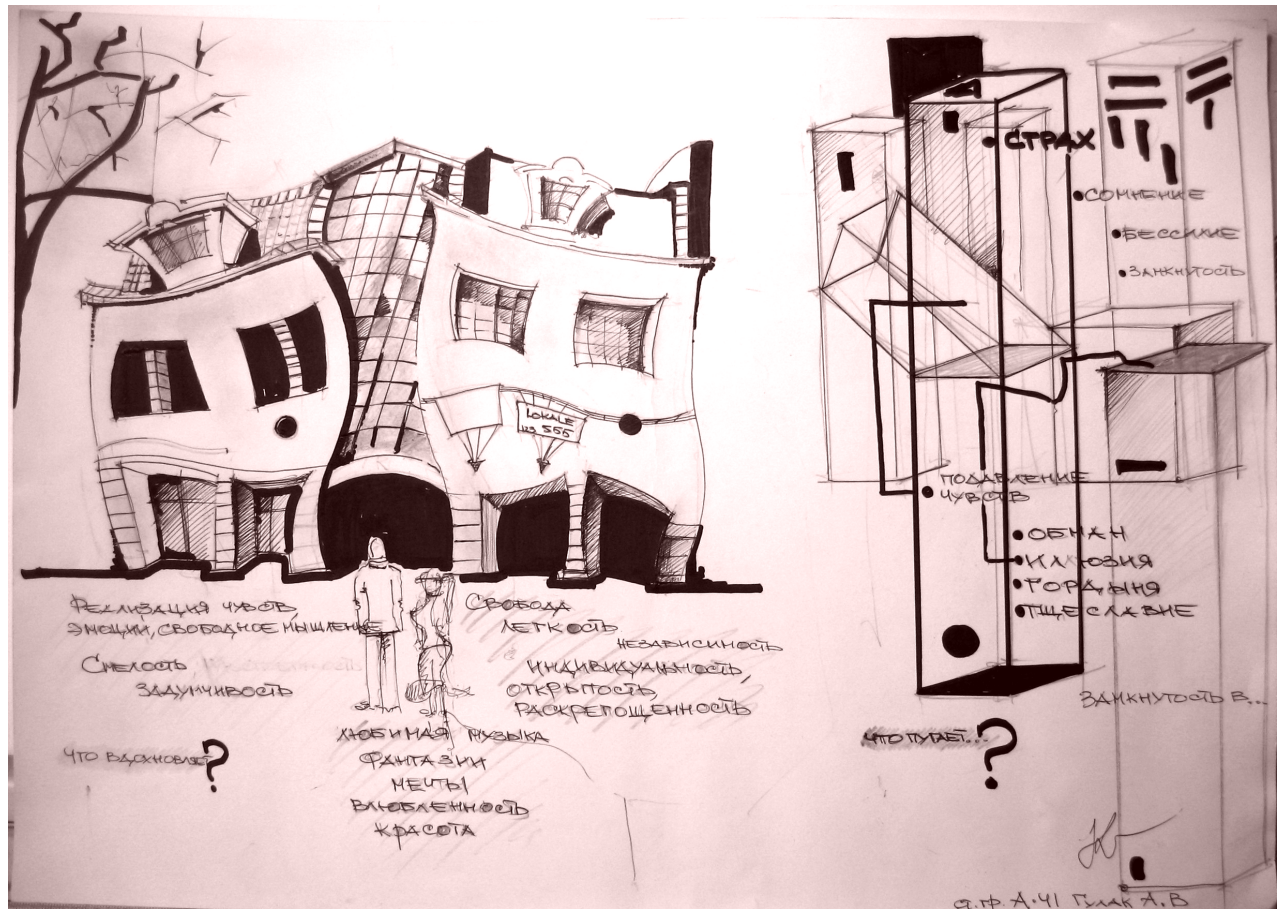 LOKALE
129 555
РЕАЛИЗАЦИЯ ЧУВСТВ,
ЭМОЦИИ, СВОБОДНОЕ МЫШЛЕНИЕ
СМЕЛОСТЬ
ЗАДУМЧИВОСТЬ
СВОБОДА
ЛЕГКОСТЬ
НЕЗАВИСИМОСТЬ
ИНДИВИДУАЛЬНОСТЬ,
ОТКРЫТОСТЬ,
РАСКРЕПОЩЕННОСТЬ
ЛЮБИМАЯ МУЗЫКА
ФАНТАЗИИ
МЕЧТЫ
ВЛЮБЛЕННОСТЬ
КРАСОТА
ЧТО ВДОХНОВЛЯЕТ?
• СТРАХ
• СОМНЕНИЕ
• БЕССИЛИЕ
• ЗАМКНУТОСТЬ
• ПОДАВЛЕНИЕ
ЧУВСТВ
• ОБМАН
• ИЛЛЮЗИЯ
• ГОРДЫНЯ
• ТЩЕСЛАВИЕ
ЗАМКНУТОСТЬ В...
ЧТО ПУГАЕТ...?
А-41 ГУЛАК А.В